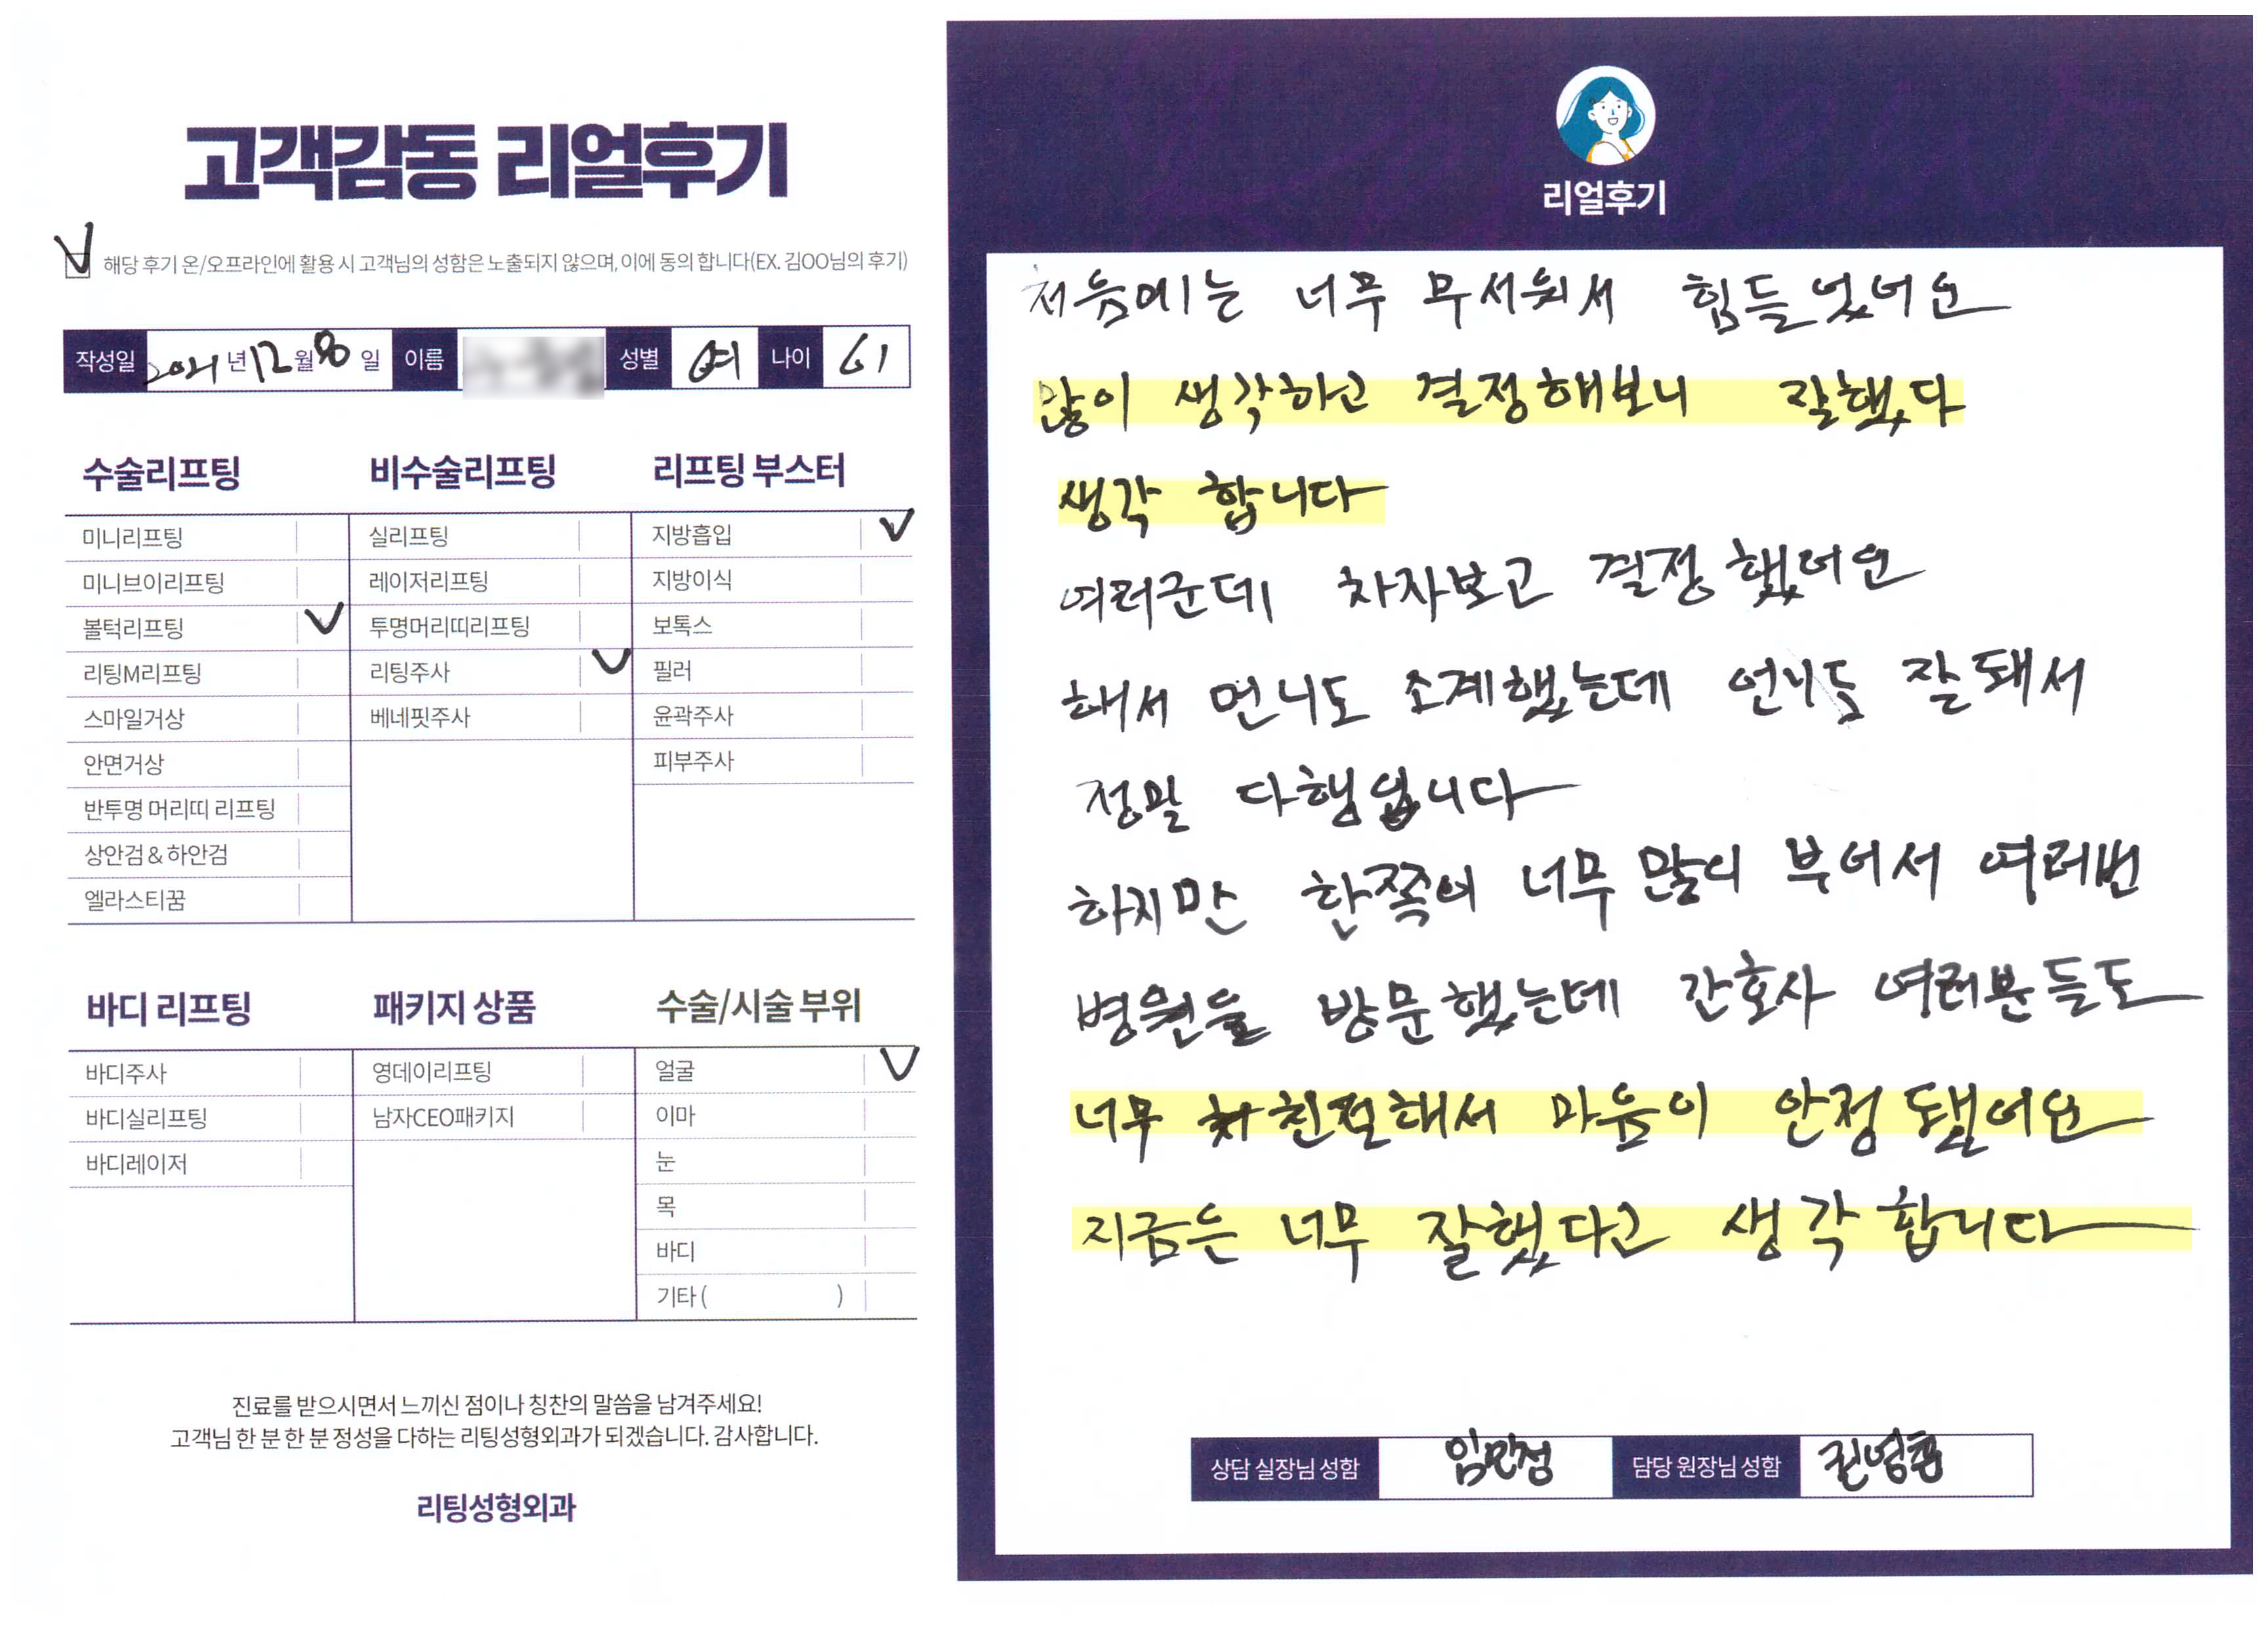 고객감동 리얼후기
해당 후기 온/오프라인에 활용 시 고객님의 성함은 노출되지 않으며, 이에 동의 합니다(EX. 김OO님의 후기)
작성일 2021년 12월 8일 이름 성별 여 나이 61
수술리프팅 비수술리프팅 리프팅 부스터
미니리프팅 실리프팅 지방흡입
미니브이리프팅 레이저리프팅 지방이식
볼턱리프팅 투명머리띠리프팅 보톡스
리팅M리프팅 리팅주사 필러
스마일거상 베네핏주사 윤곽주사
안면거상 피부주사
반투명 머리띠 리프팅
상안검 & 하안검
엘라스티꿈
바디 리프팅 패키지 상품 수술/시술 부위
바디주사 영데이리프팅 얼굴
바디실리프팅 남자CEO패키지 이마
바디레이저 눈
목
바디
기타 ( )
진료를 받으시면서 느끼신 점이나 칭찬의 말씀을 남겨주세요!
고객님 한 분 한 분 정성을 다하는 리팅성형외과가 되겠습니다. 감사합니다.
리팅성형외과
리얼후기
처음에는 너무 무서워서 힘들었어요
많이 생각하고 결정해보니 잘했다
생각 합니다
여러군데 차자보고 결정했어요
해서 언니도 소계했는데 언니도 잘돼서
정말 다행입니다
하지만 한쪽이 너무 많이 부어서 여러번
병원을 방문했는데 간호사 여러분들도
너무 친절해서 마음이 안정됐어요
지금은 너무 잘했다고 생각합니다
상담 실장님 성함 임민정 담당 원장님 성함